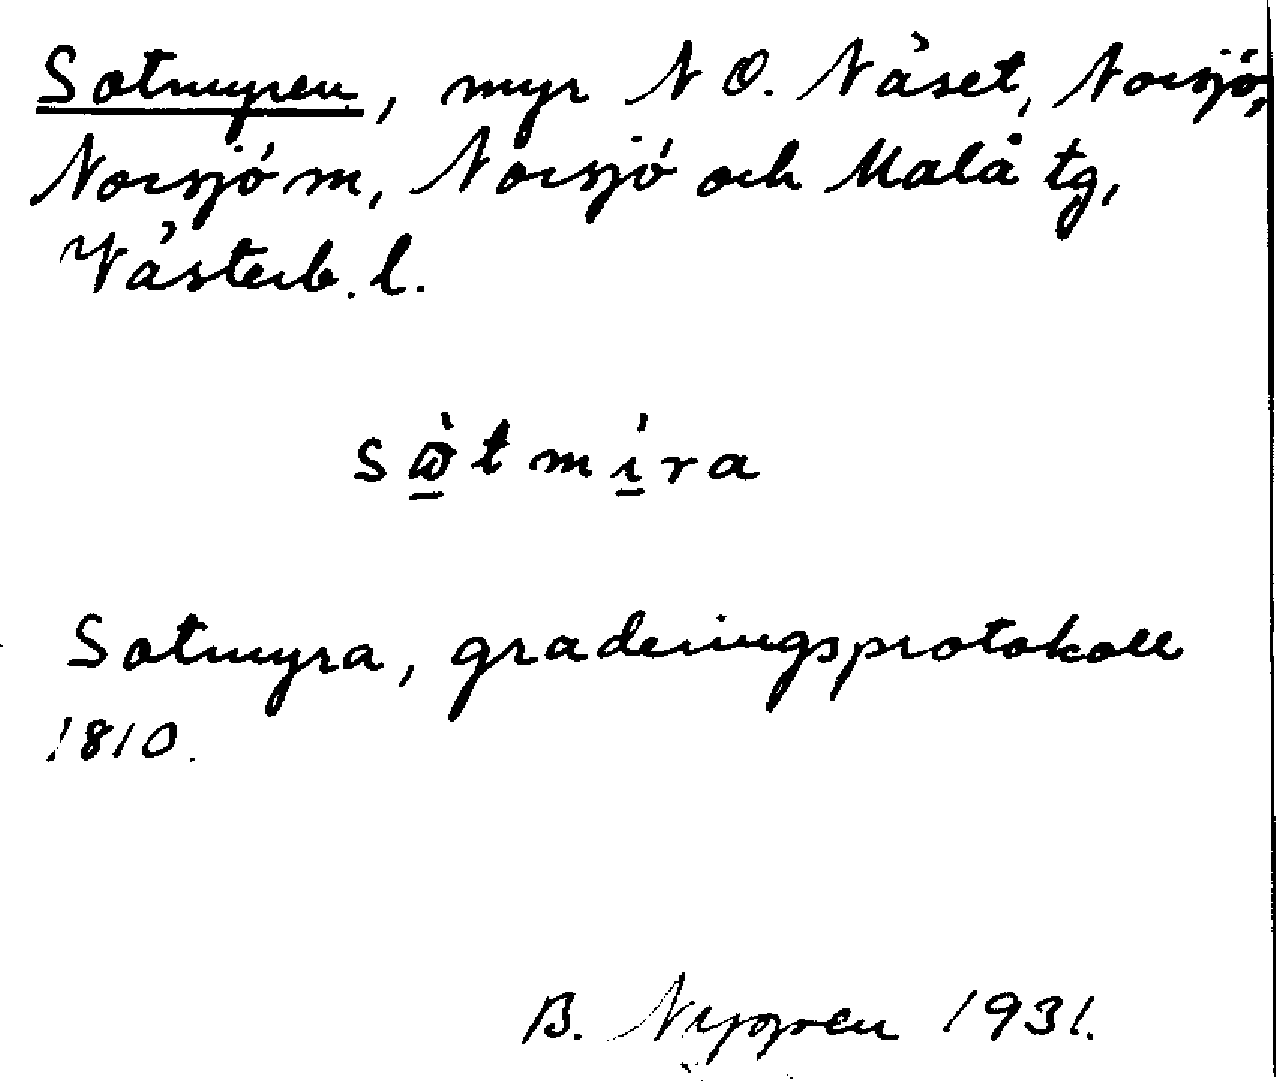 Sotmyren, myr N O. Näset, Norsjö,
Norsjö m, Norsjö och Malå tg,
Västerb. l.
sὼ̲tmí̲ra
Sotmyra, graderingsprotokoll
1810.
B. Nygren 1931.